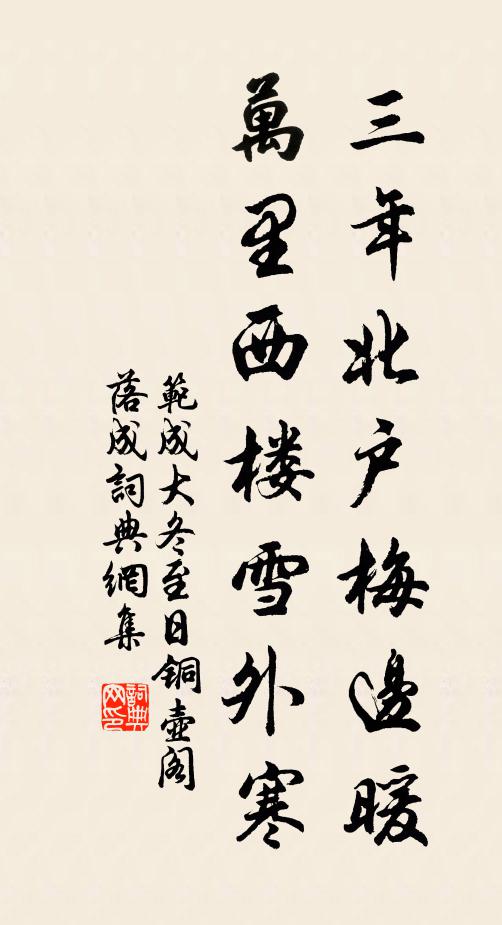 三年北户梅邊暖
萬里西楼雪外寒
範成大冬至日铜壺阁
落成詞典網集
詞典网印